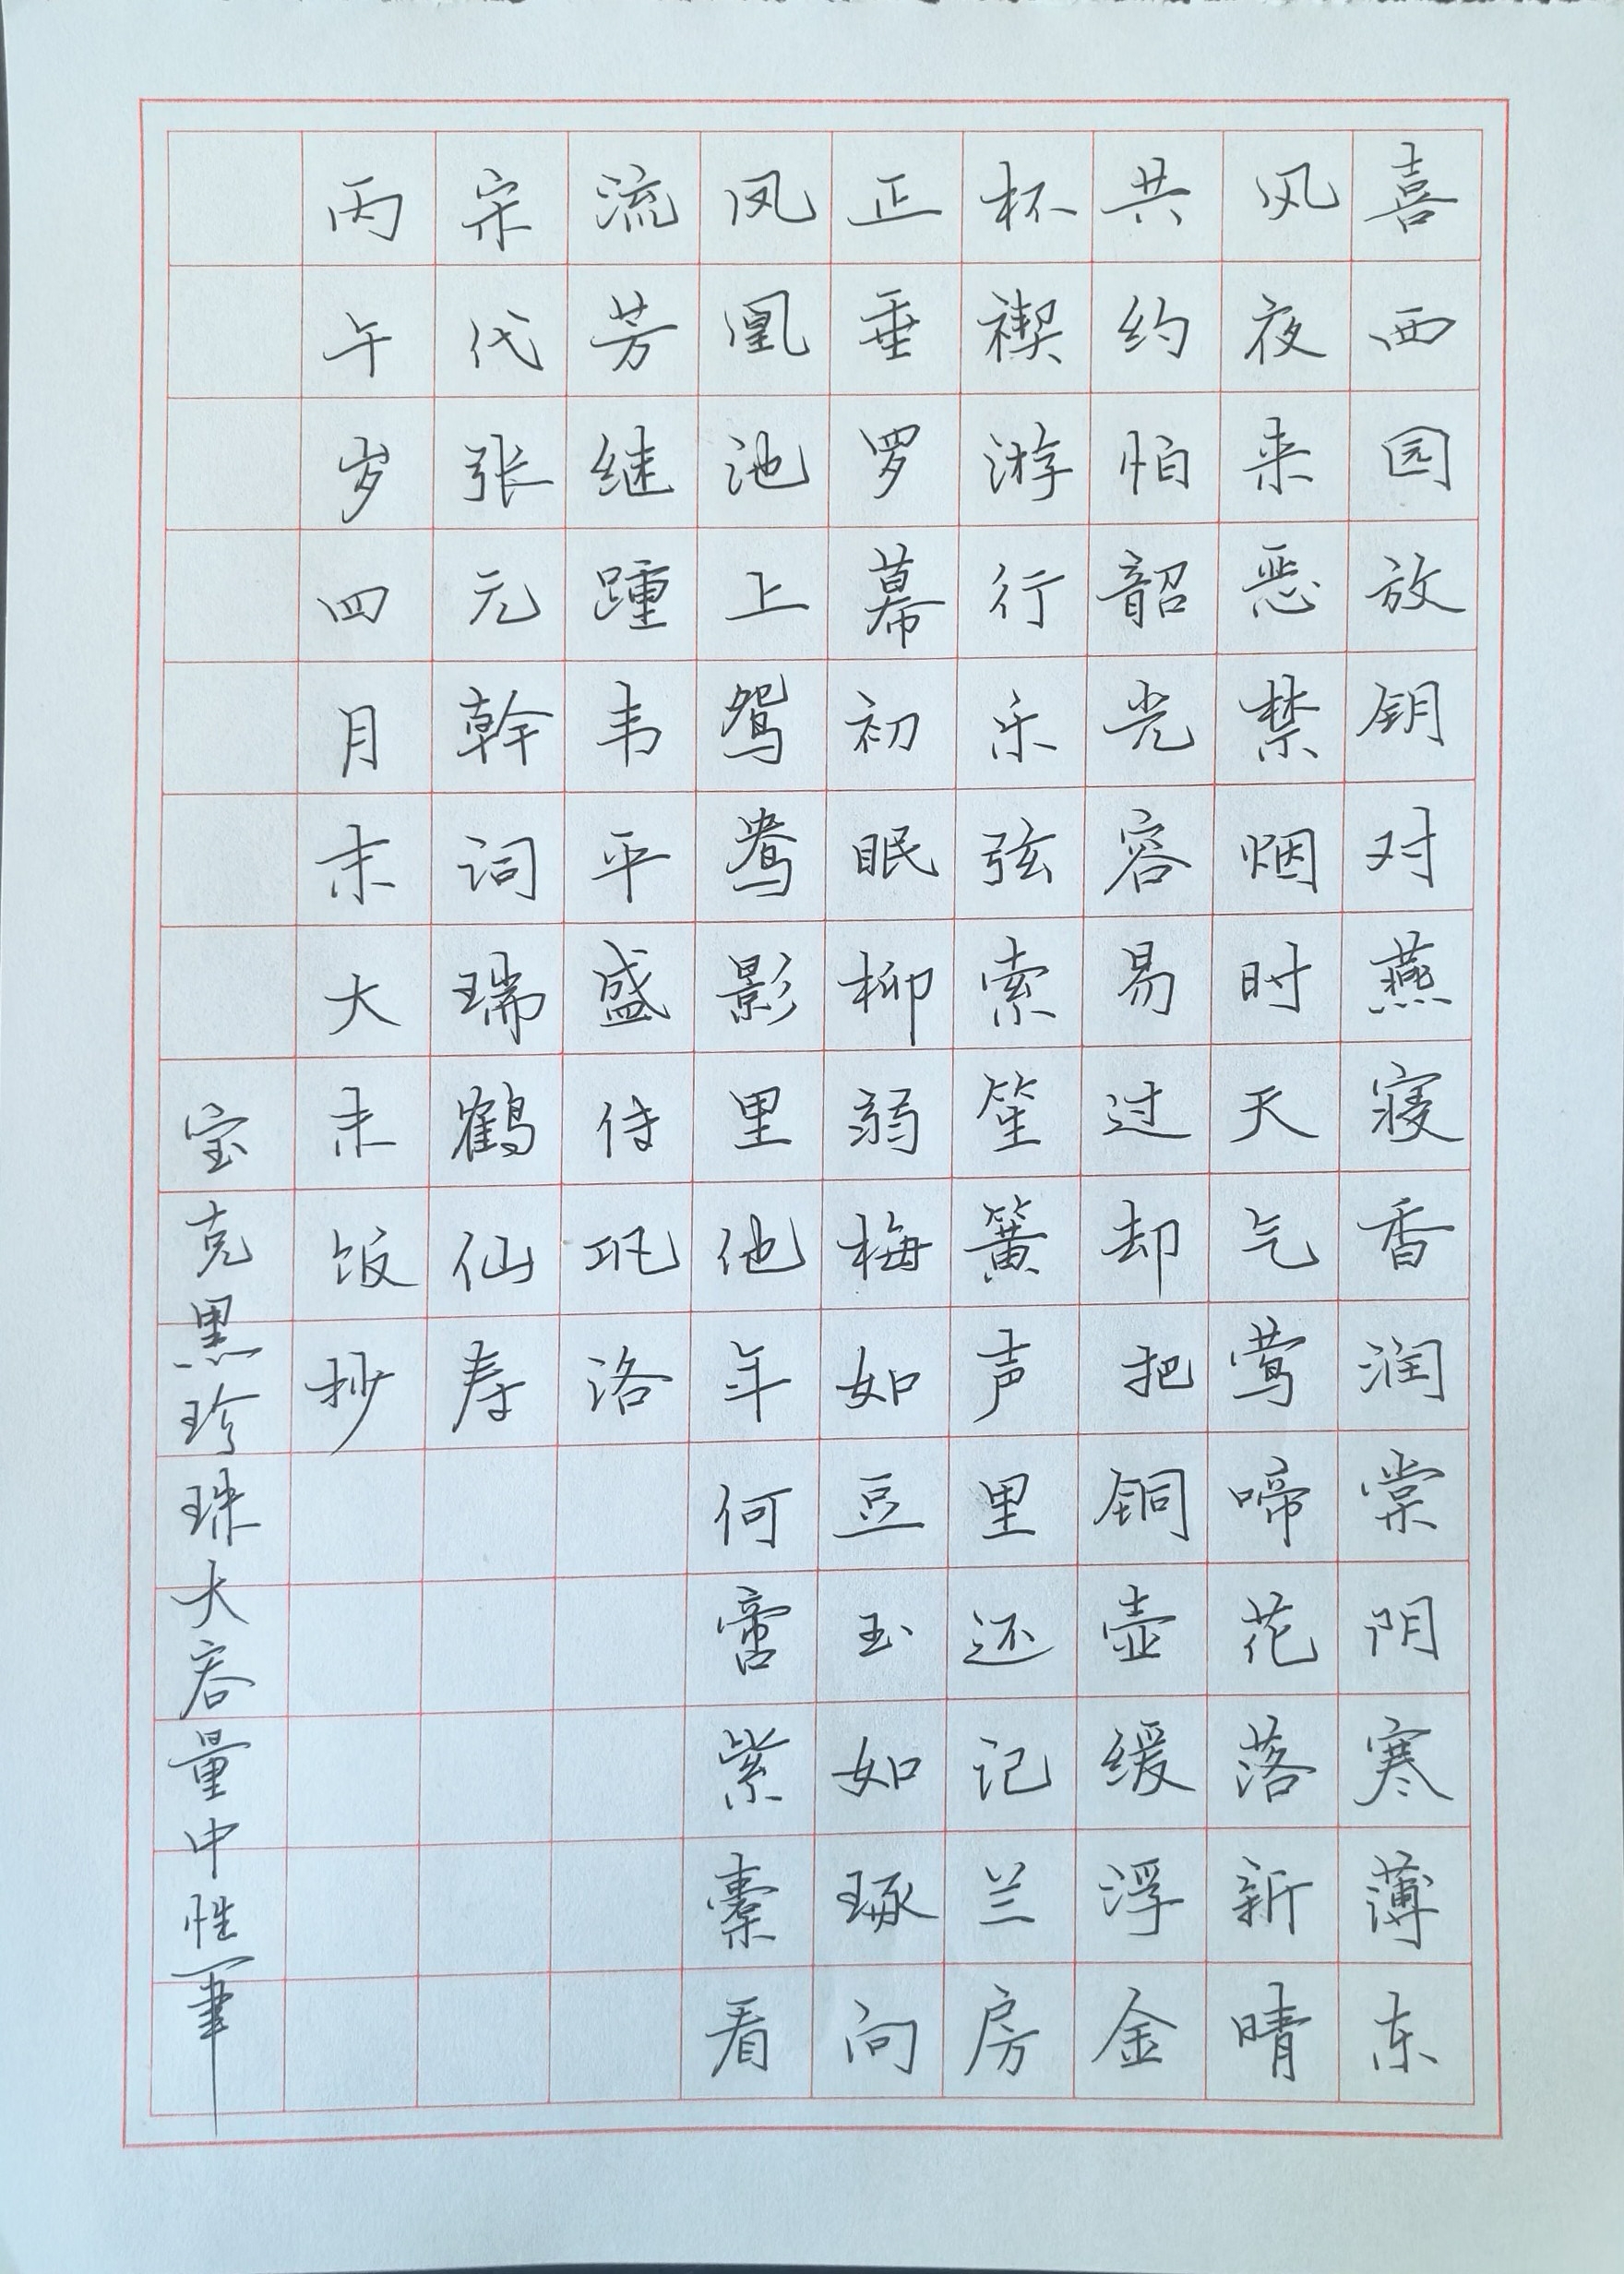 喜西园放钥对燕寝香润棠阴寒薄东
风夜来恶禁烟时天气莺啼花落新晴
共约怕韶光容易过却把铜壶缓浮金
杯禊游行乐弦索笙簧声里还记兰房
正垂罗幕初眠柳弱梅如豆玉如琢向
凤凰池上鸳鸯影里他年何啻紫橐看
流芳继踵韦平盛侍巩洛
宋代张元幹词瑞鹤仙寿
丙午岁四月末大未饭抄
宝克黑珍珠大容量中性笔